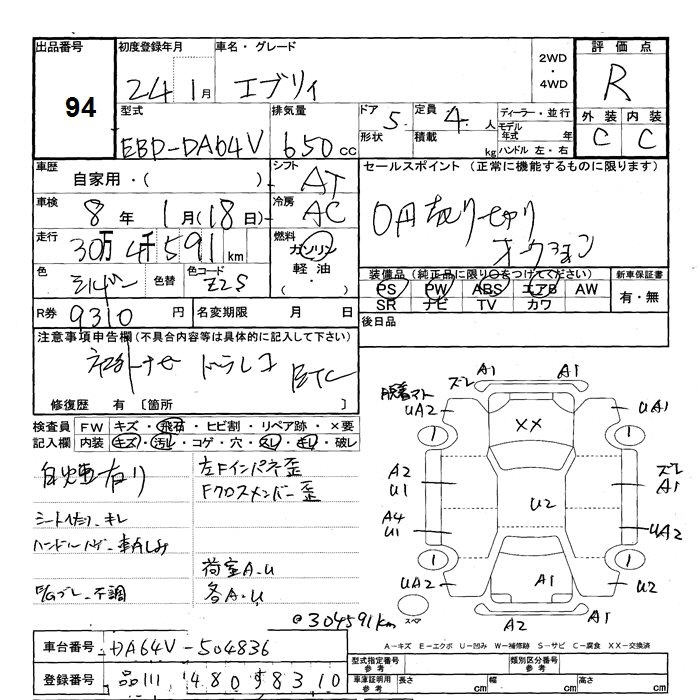 出品番号 初度登録年月 車名・グレード 2WD・4WD 評価点
94 24 1月 エブリィ R
型式 排気量 ドア 5 定員 4 人 ディーラー・並行 外装 内装
EBD-DA64V 650cc 形状 積載 kg モデル年式 年 ハンドル 左・右 C C
車歴 シフト セールスポイント(正常に機能するものに限ります)
自家用・( ) AT
車検 8年 1月(18日) 冷房 AC
走行 30万4千591km 燃料 ガソリン 軽油 ( ・ )
色 シルバー 色替 色コード Z2S
装備品(純正品に限り○をつけてください) 新車保証書
PS PW ABS エアB AW 有・無
SR ナビ TV カワ
R券 9310円 名変期限 月 日 後日品
注意事項申告欄(不具合内容等は具体的に記入して下さい)
ドラレコ ETC
修復歴 有〔箇所 〕
検査員 FW キズ・飛石・ヒビ割・リペア跡・×要
記入欄 内装 キズ・汚レ・コゲ・穴・スレ・キレ・破レ
左Fインパネ歪
Fクロスメンバー歪
キレ
ハンドル
不調
荷室A.U
各A.U
@304591km
ズレ A1 A1
UA2 UA1
XX
1 1
A2 U1 ズレ A1
U2
A4 U1 UA2
1 1
UA2 A1 U2
スペア A2 A1
車台番号 DA64V-504836
登録番号 品川 480 す 8310
A-キズ E-エクボ U-凹み W-補修跡 S-サビ C-腐食 XX-交換済
型式指定番号 参考 類別区分番号 参考
車庫証明用 参考 長さ cm 幅 cm 高さ cm